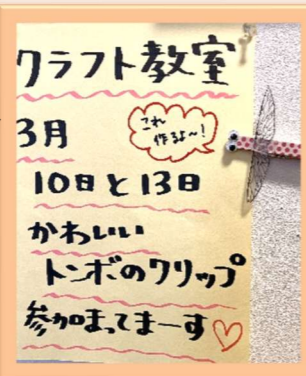 クラフト教室
これ
作るよ〜!
3月
10日と13日
かわいい
トンボのクリップ
参加まってまーす♡